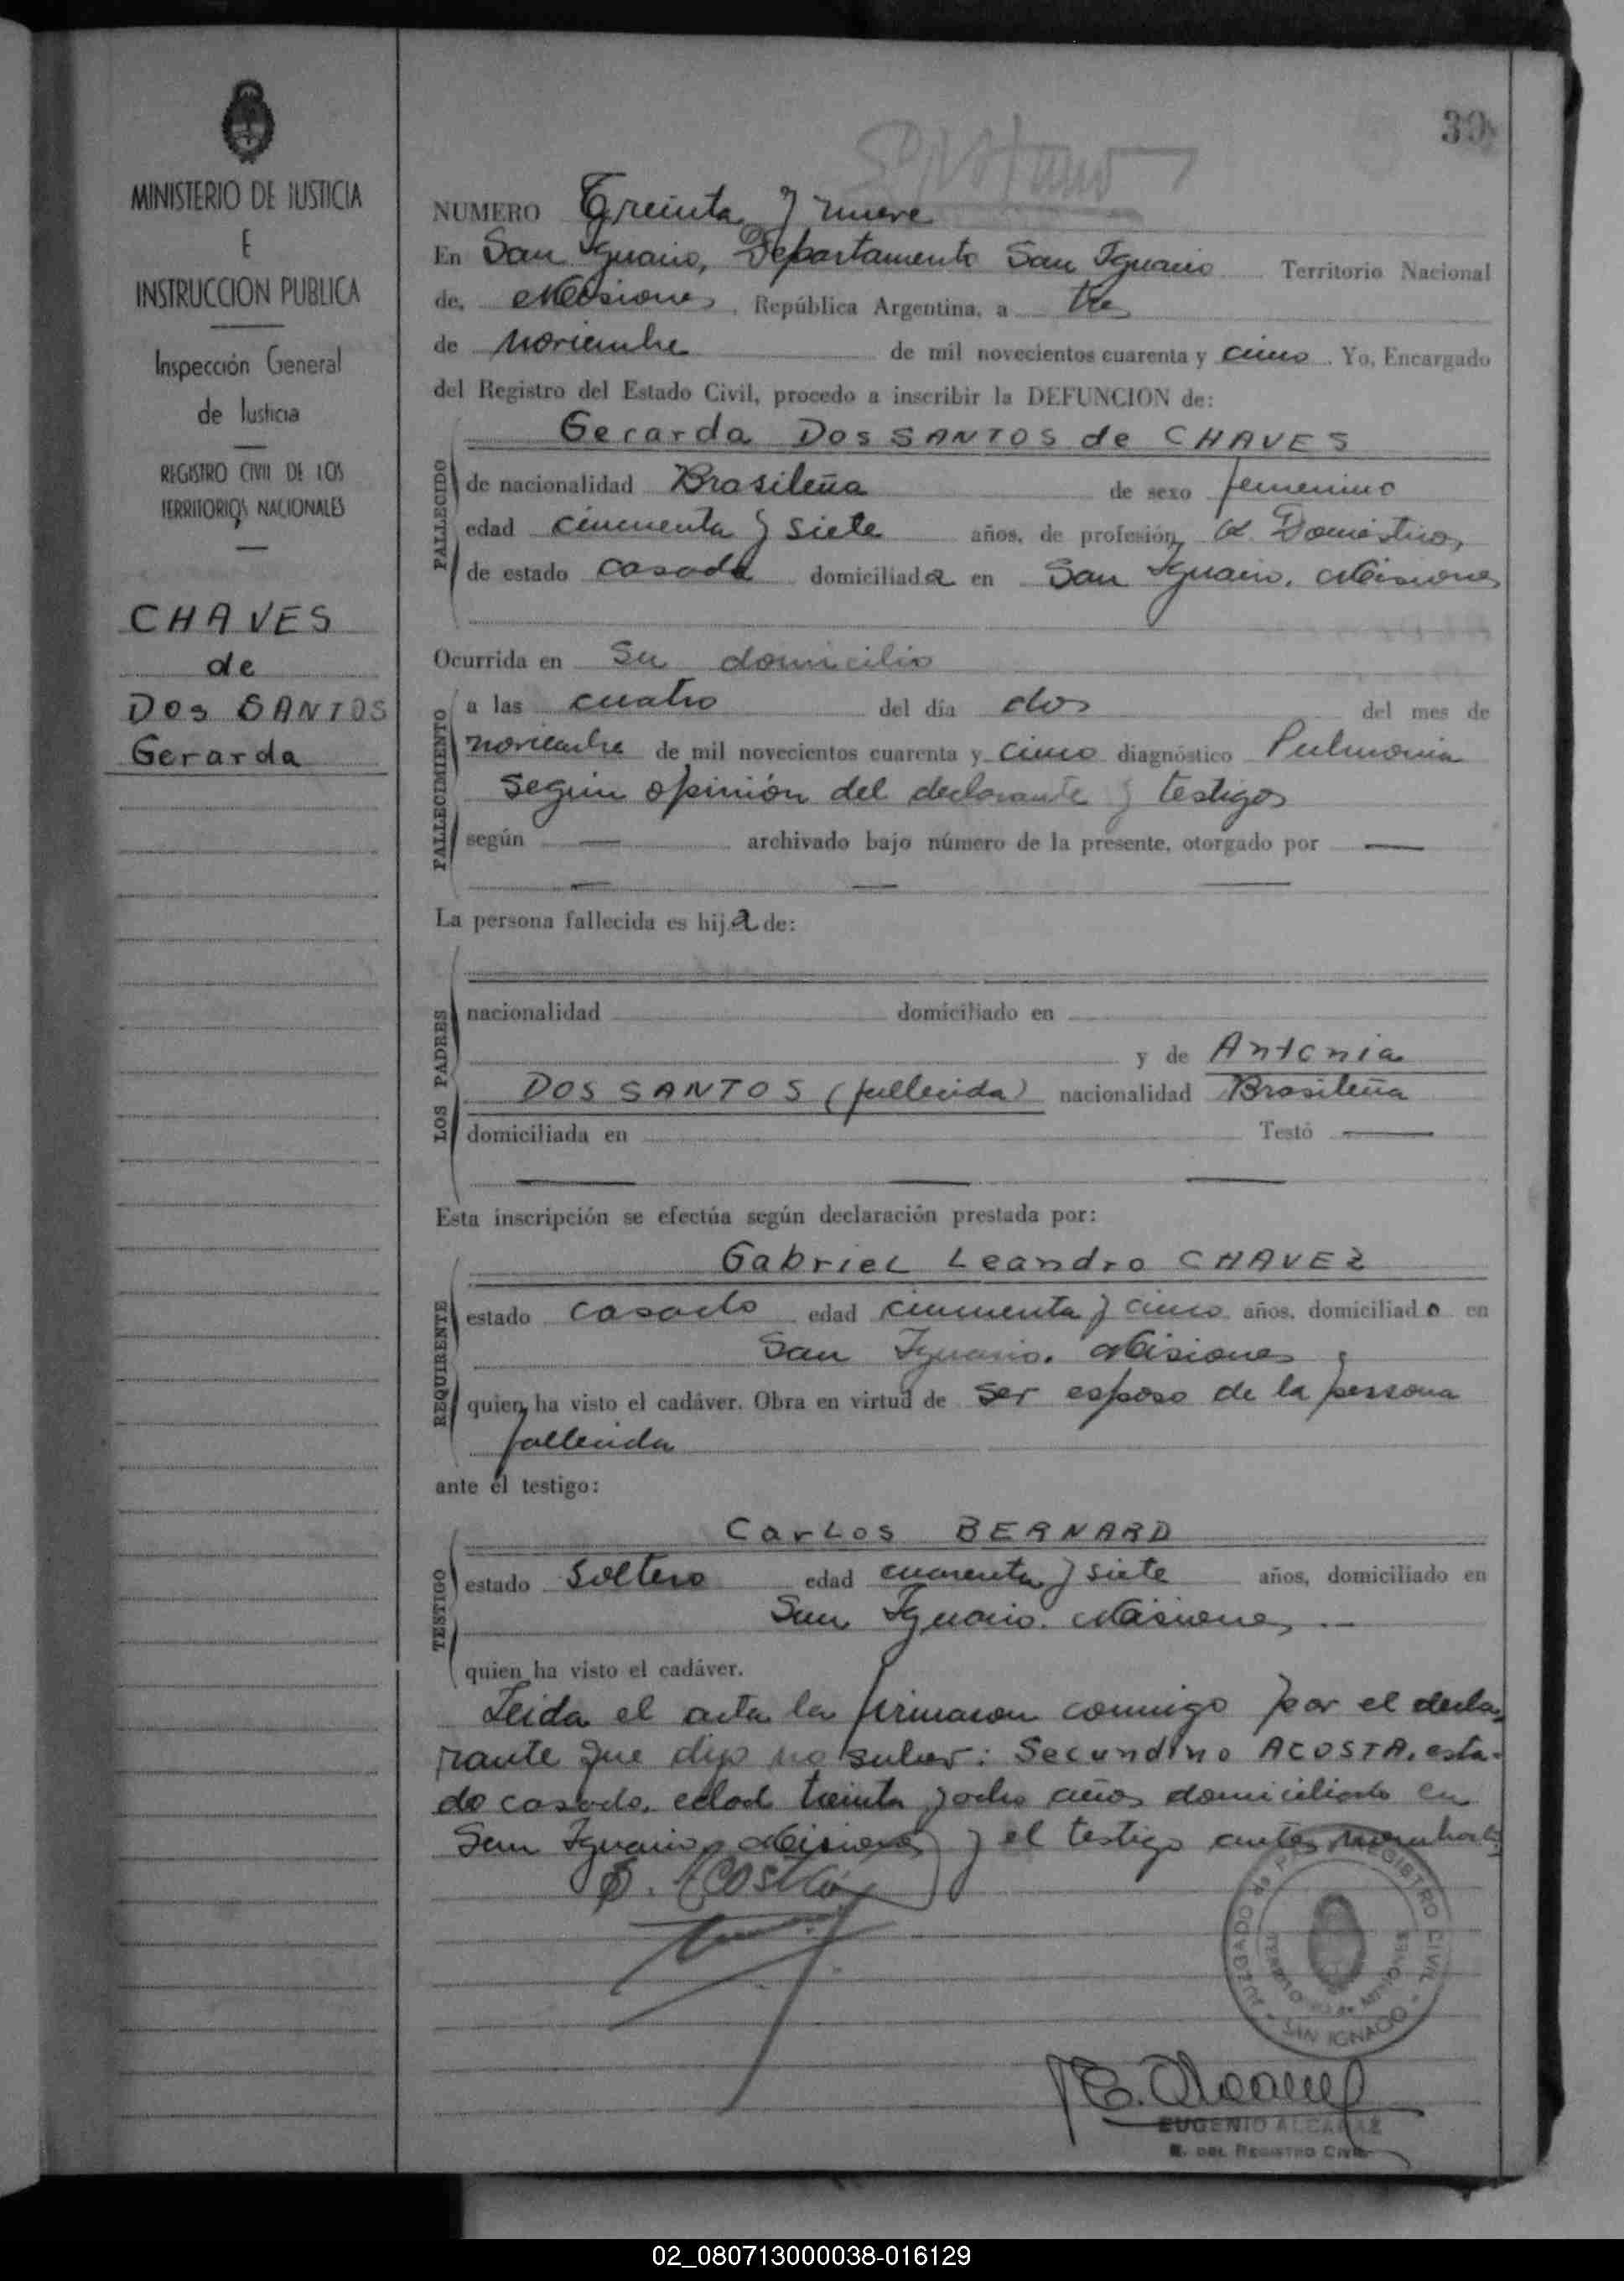 MINISTERIO DE JUSTICIA
E
INSTRUCCION PUBLICA
Inspección General
de Justicia
REGISTRO CIVIL DE LOS
TERRITORIOS NACIONALES
CHAVES
de
DOS SANTOS
Gerarda
39
NUMERO Treinta y nueve
En San Ignacio, Departamento San Ignacio Territorio Nacional
de, Misiones, República Argentina, a tres
de noviembre de mil novecientos cuarenta y cinco. Yo, Encargado
del Registro del Estado Civil, procedo a inscribir la DEFUNCION de:
FALLECIDO
Gerarda DOS SANTOS de CHAVES
de nacionalidad Brasileña de sexo femenino
edad cincuenta y siete años, de profesión Q. Domésticos
de estado casada domiciliada en San Ignacio, Misiones
Ocurrida en Su domicilio
FALLECIMIENTO
a las cuatro del día dos del mes de
noviembre de mil novecientos cuarenta y cinco diagnóstico Pulmonía
según opinión del declarante y testigos
según — archivado bajo número de la presente, otorgado por —
La persona fallecida es hija de:
LOS PADRES
nacionalidad domiciliado en
y de Antonia
DOS SANTOS (fallecida) nacionalidad Brasileña
domiciliada en Testó —
Esta inscripción se efectúa según declaración prestada por:
REQUIRENTE
Gabriel Leandro CHAVEZ
estado casado edad cincuenta y cinco años, domiciliado en
San Ignacio. Misiones
quien ha visto el cadáver. Obra en virtud de ser esposo de la persona
fallecida
ante el testigo:
TESTIGO
Carlos BERNARD
estado Soltero edad cuarenta y siete años, domiciliado en
San Ignacio. Misiones
quien ha visto el cadáver.
Leida el acta la firmaron conmigo por el decla-
rante que dijo no saber: Secundino ACOSTA, esta-
do casado, edad treinta y ocho años domiciliado en
San Ignacio, Misiones y el testigo antes
S. Acosta
JUZGADO de PAZ REGISTRO CIVIL
TERRITORIO de MISIONES
SAN IGNACIO
E. Alcaraz
EUGENIO ALCARAZ
E. DEL REGISTRO CIVIL
02_080713000038-016129